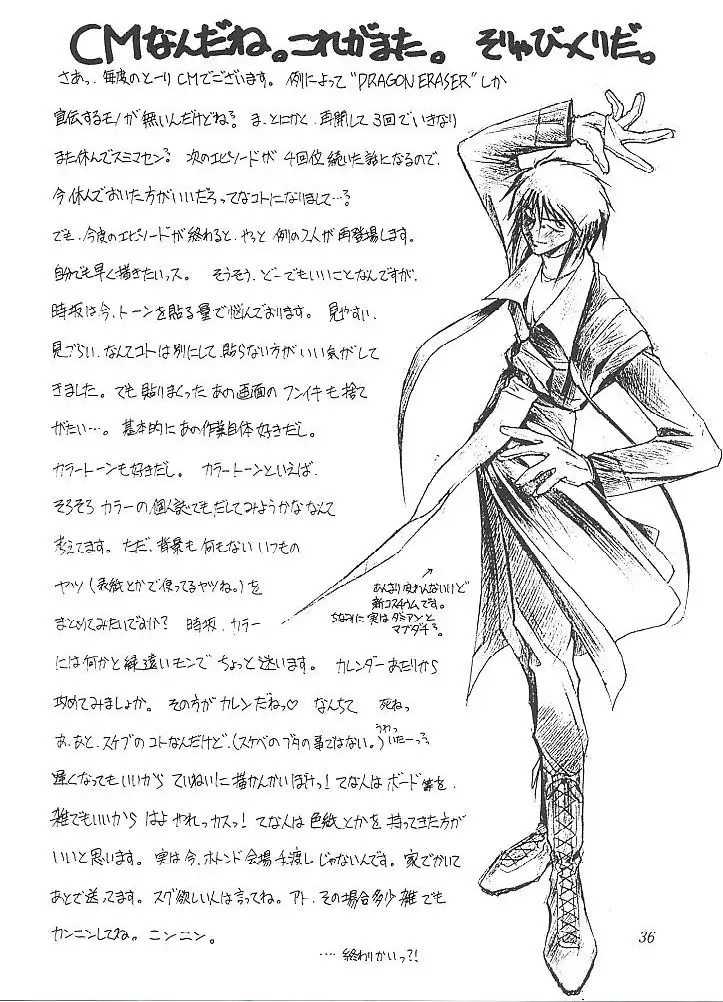 CMなんだね。これがまた。 そりゃびっくりだ。
さあっ、毎度のとーりCMでございます。例によって“DRAGON ERASER”しか
宣伝するモノが無いんだけどね？ま、とにかく、再開して3回でいきなり
また休んでスミマセン？次のエピソードが4回位続いた話になるので、
今休んでおいた方がいいだろってなコトになりまして…？
でも、今度のエピソードが終わると、やっと例の2人が再登場します。
自分でも早く描きたいっス。そうそう、どーでもいいことなんですが、
時坂は今、トーンを貼る量で悩んでおります。見やすい、
見づらい、なんてコトは別にして、貼らない方がいい気がして
きました。でも貼りまくったあの画面のフンイキも捨て
がたい…。基本的にあの作業自体好きだし。
カラートーンも好きだし。カラートーンといえば、
そろそろカラーの個人誌でもだしてみようかななんて
考えてます。ただ、背景も何もないいつもの
ヤツ（表紙とかで使ってるヤツね。）を
まとめてみたいですか？時坂、カラー
には何かと縁遠いモンでちょっと迷います。カレンダーあたりから
攻めてみましょか。その方がカレンだねっ♡なんちて 死ねっ
あ、あと、スケブのコトなんだけど、（スケベのブタの事ではない。）いたーっ？
うわっ
遅くなってもいいからていねいに描かんかいぼけっ！てな人はボード等を、
雑でもいいからはよやれっカスっ！てな人は色紙とかを持ってきた方が
いいと思います。実は今、ホトンド会場手渡しじゃないんです。家でかいて
あとで送ってます。スグ欲しい人は言ってね。アト、その場合多少雑でも
カンニンしてね。ニンニン。
…終わりかいっ?!
あんまり変れんないけど
新コスチウムです。
ちなみに実はダミアンと
マブダチ？
36